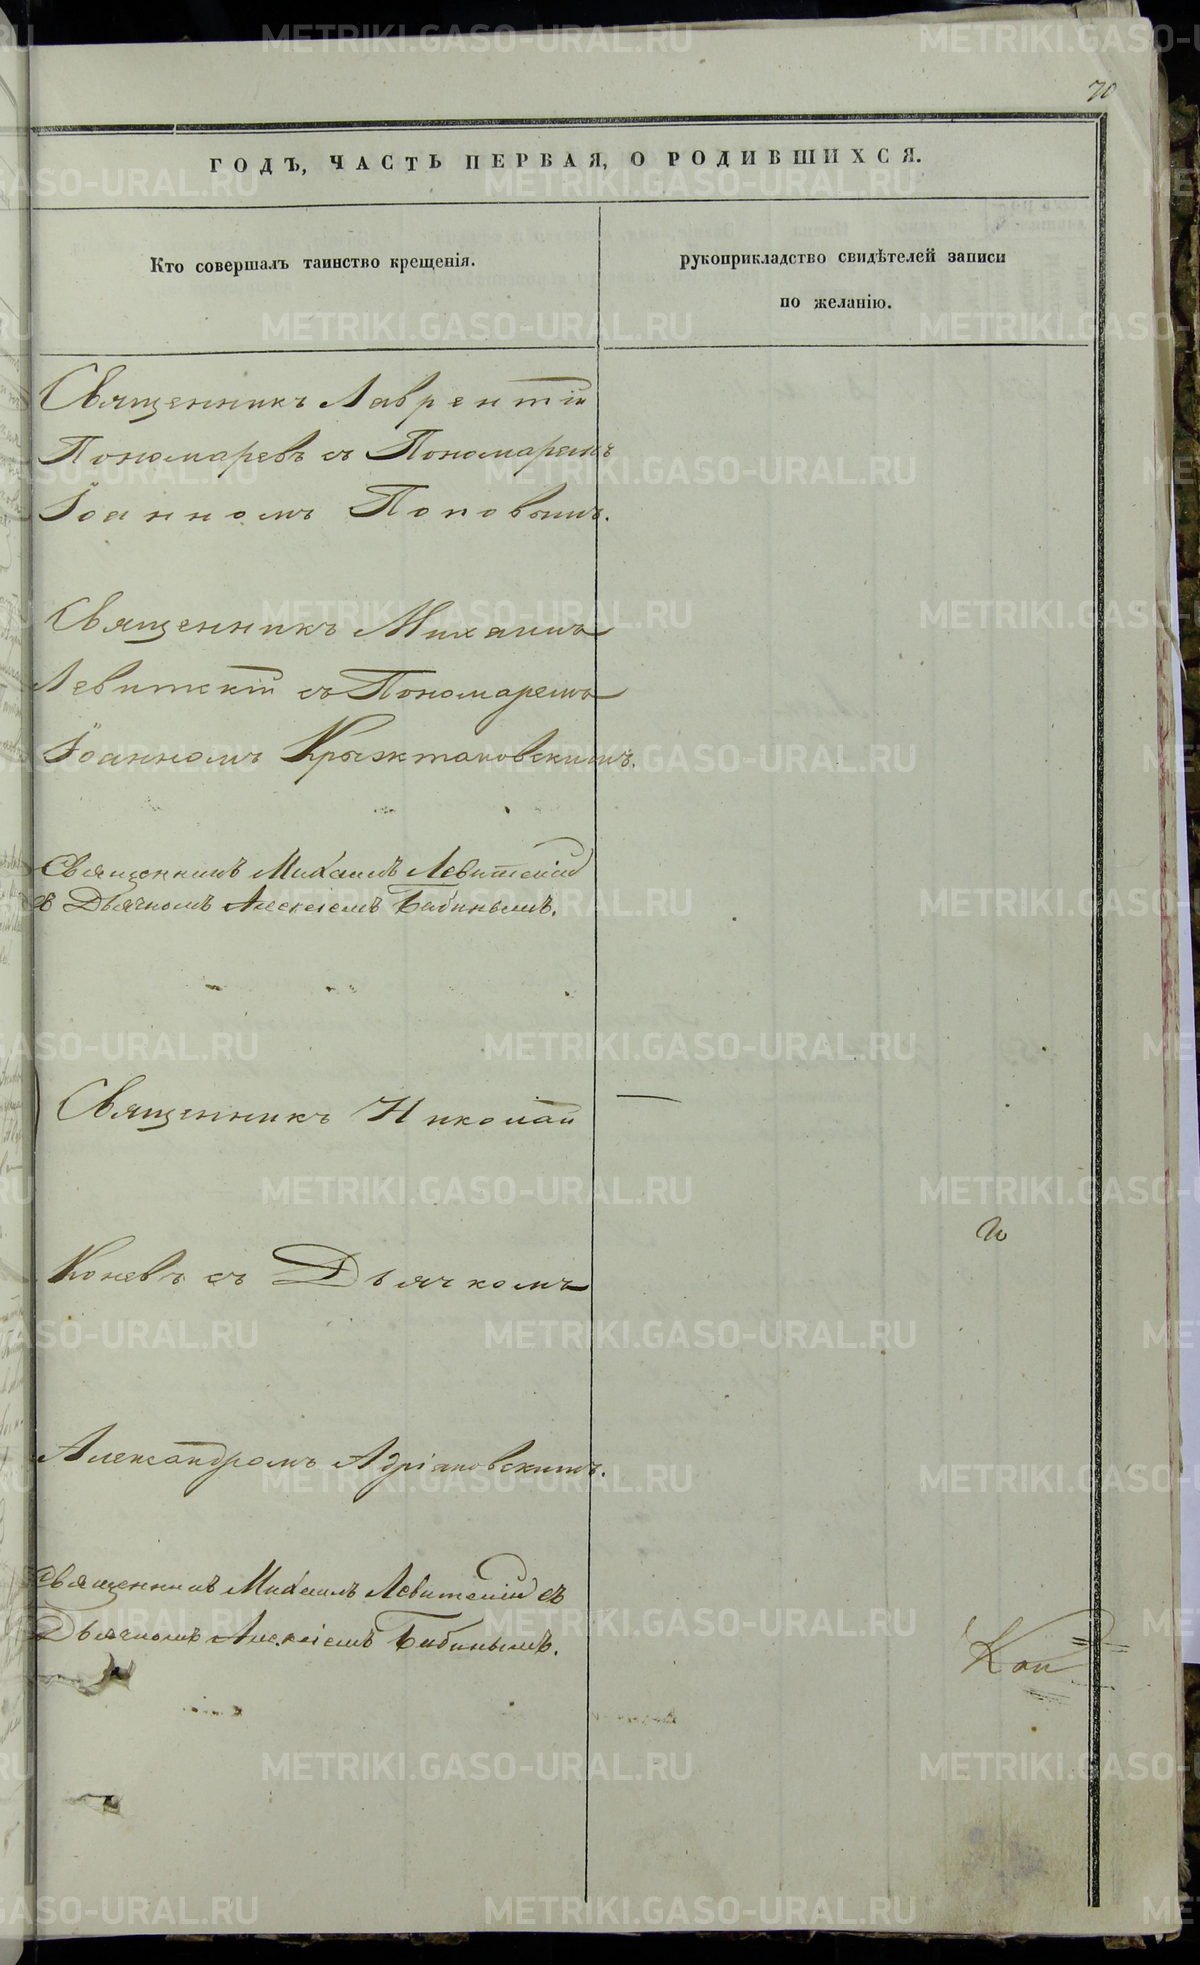 70
ГОДЪ, ЧАСТЬ ПЕРВАЯ, О РОДИВШИХСЯ.
Кто совершалъ таинство крещенія.
рукоприкладство свидѣтелей записи
по желанію.
Священникъ Лаврентій
Пономаревъ съ Пономаремъ
Іоанномъ Поповымъ.
Священникъ Михаилъ
Левитскій съ Пономаремъ
Іоанномъ Крыжтановскимъ.
Священникъ Михаилъ Левитскій
съ Дьячкомъ Алексіемъ Бабинымъ.
Священникъ Николай
Коневъ съ Дьячкомъ
Александромъ Адріановскимъ.
Священникъ Михаилъ Левитскій съ
Дьячкомъ Алексіемъ Бабинымъ.
METRIKI.GASO-URAL.RU